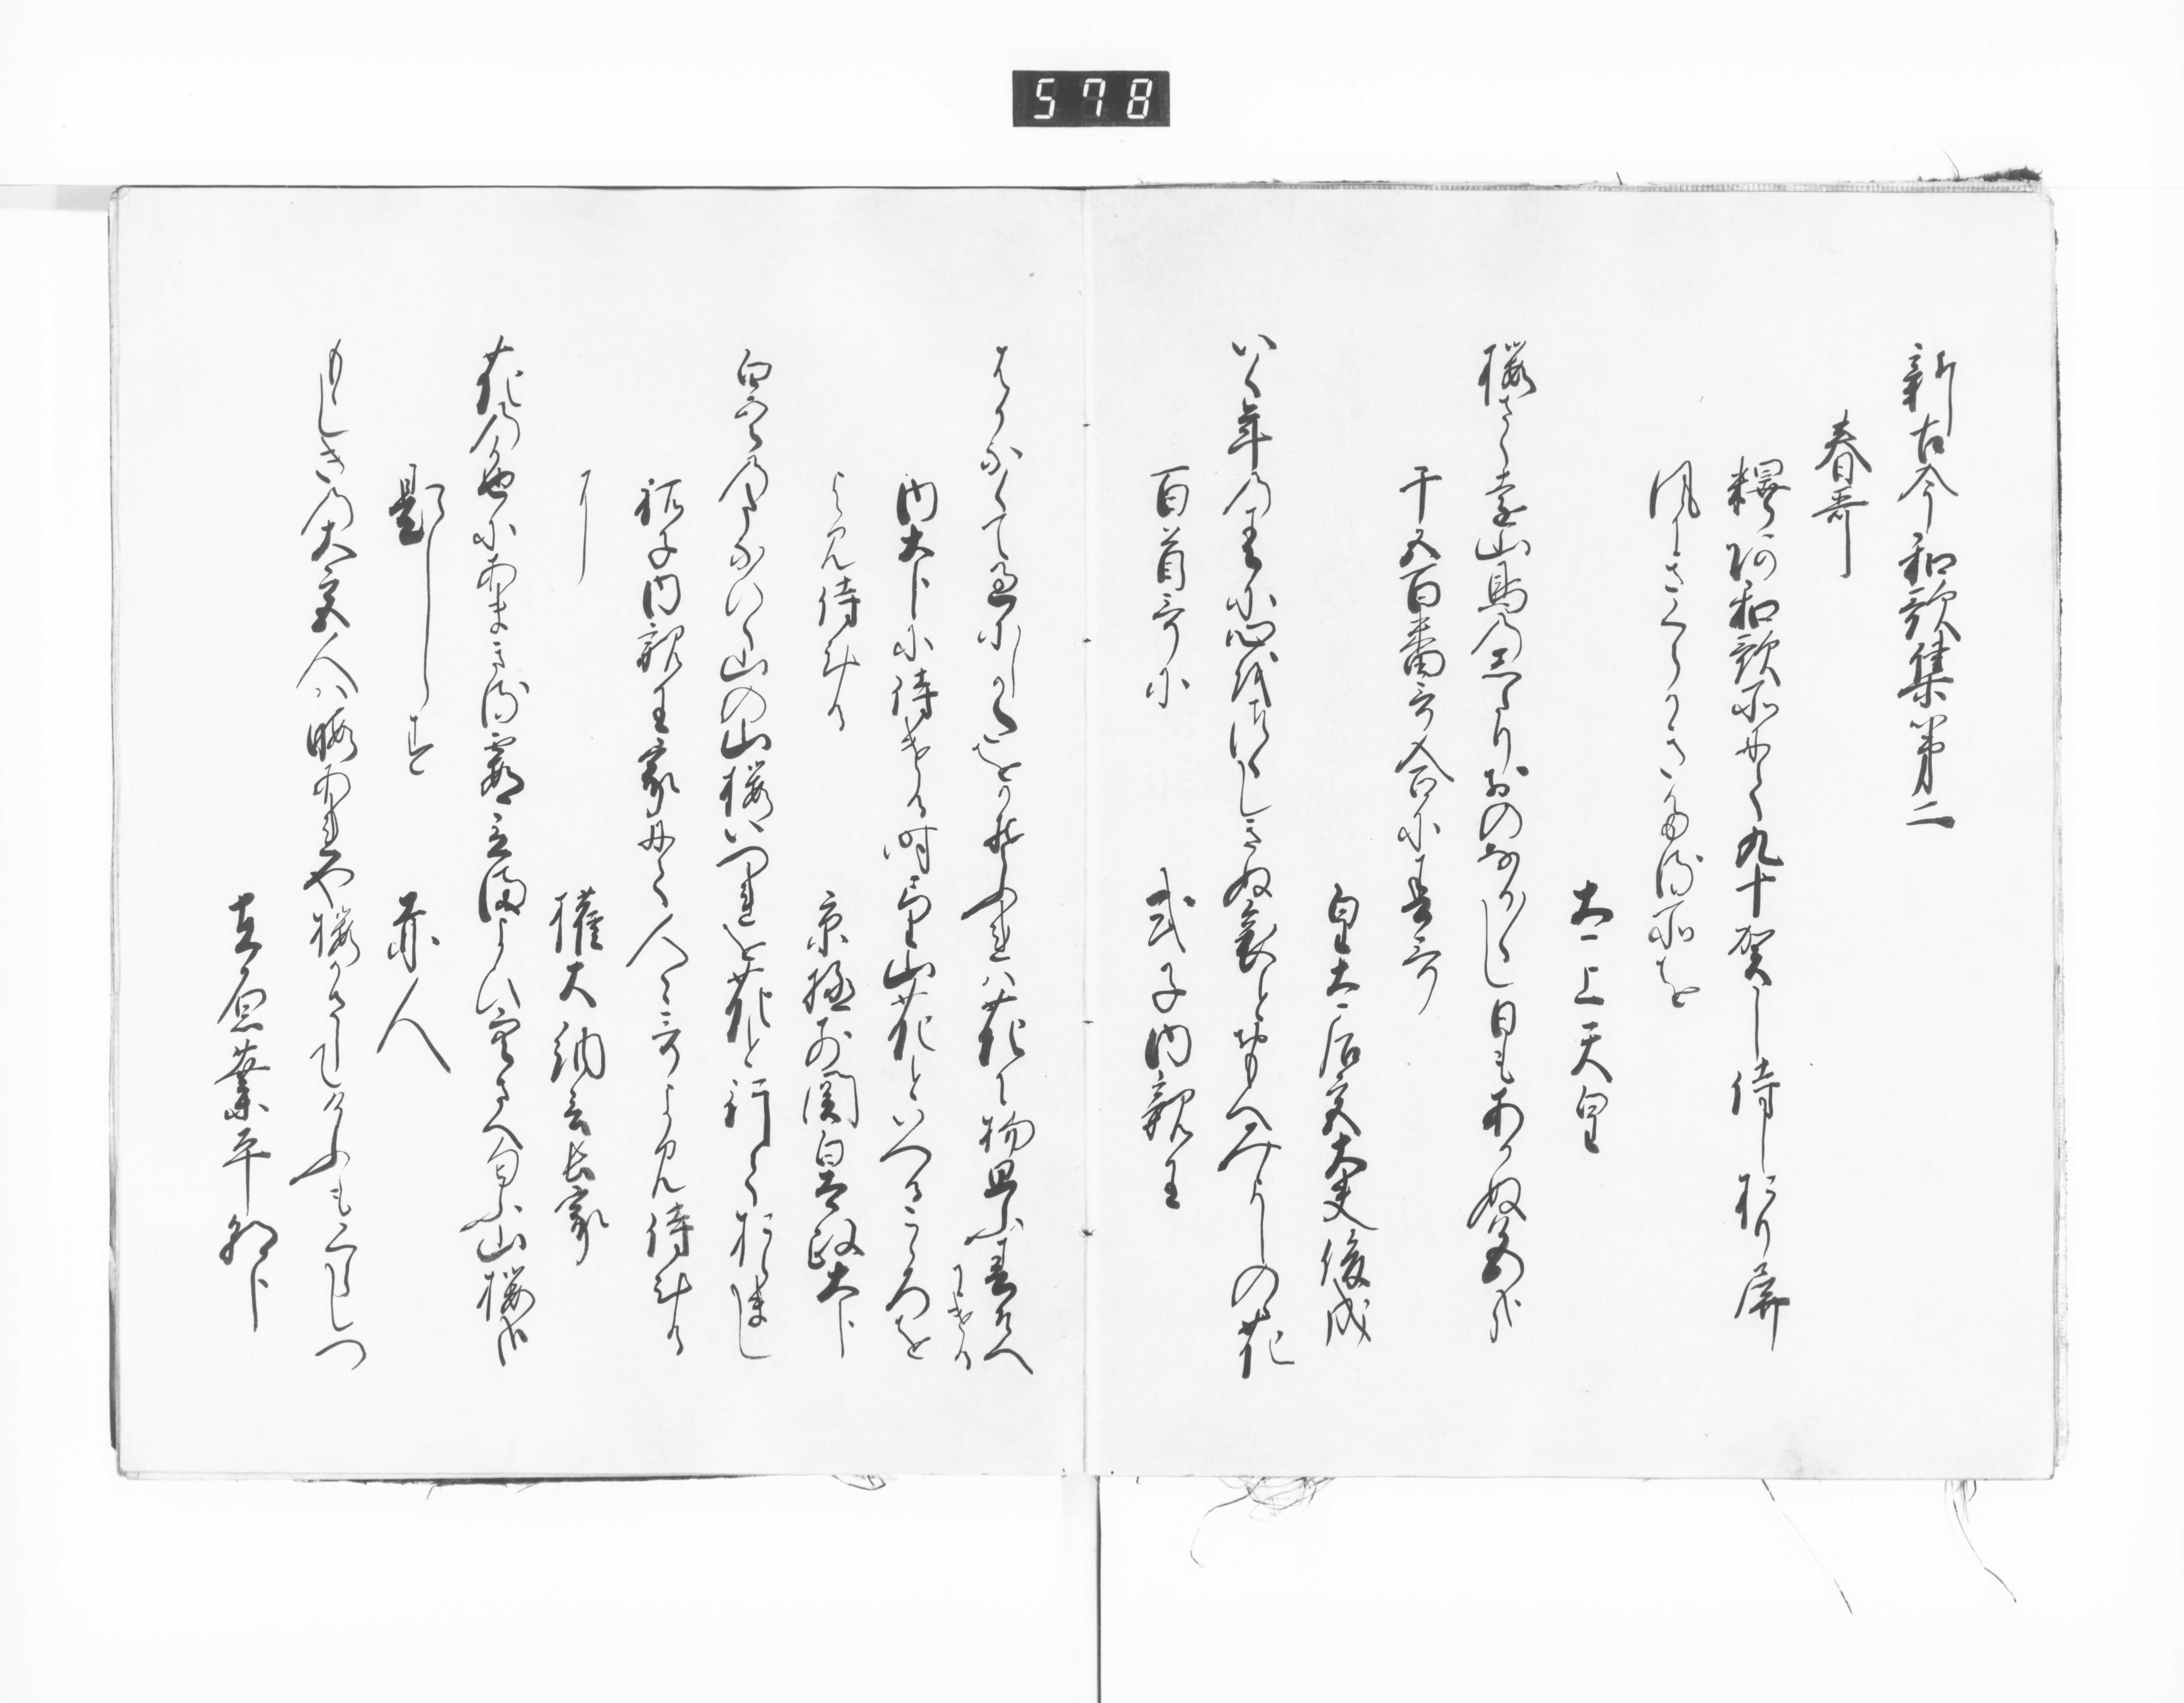 578
新古今和歌集第二
春哥
釋阿和歌所にて九十賀し侍しおり屏
風にさくらかきたる所を
太上天皇
桜さく遠山鳥のしたりおのなか／＼し日もあかぬ色かな
千五百番哥合に春哥
皇太后宮大夫俊成
いく年の春に心をつくしきぬ哀とおもへみよしの花
百首哥に
式子内親王
はかなくて過にしかたをかそふれは花に物思ふ春そへにける
内大臣に侍ける時望山花といへるこゝろを
よみ侍ける
京極前関白太政大臣
白雲のたなひく山の山桜いつれを花と行ておらまし
祐子内親王家にて人々哥よみ侍け
り
権大納言長家
花の色にあまきる霞立まよひ空さへ匂ふ山桜かな
題しらす
赤人
もゝしきの大宮人は暇あれや桜かさしてけふもくらしつ
在原業平朝臣